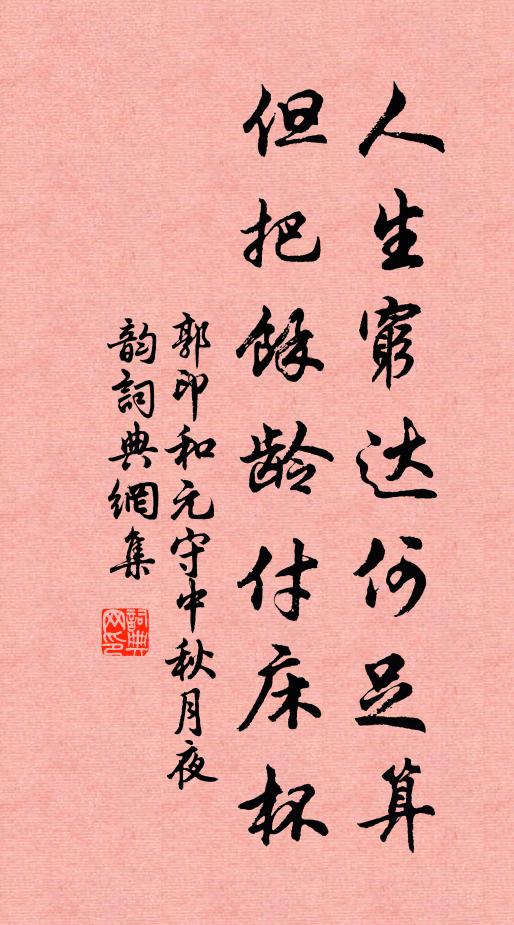 人生窮达何足算
但把餘龄付床杯
郭印和元守中秋月夜
韵詞典網集
詞典网印